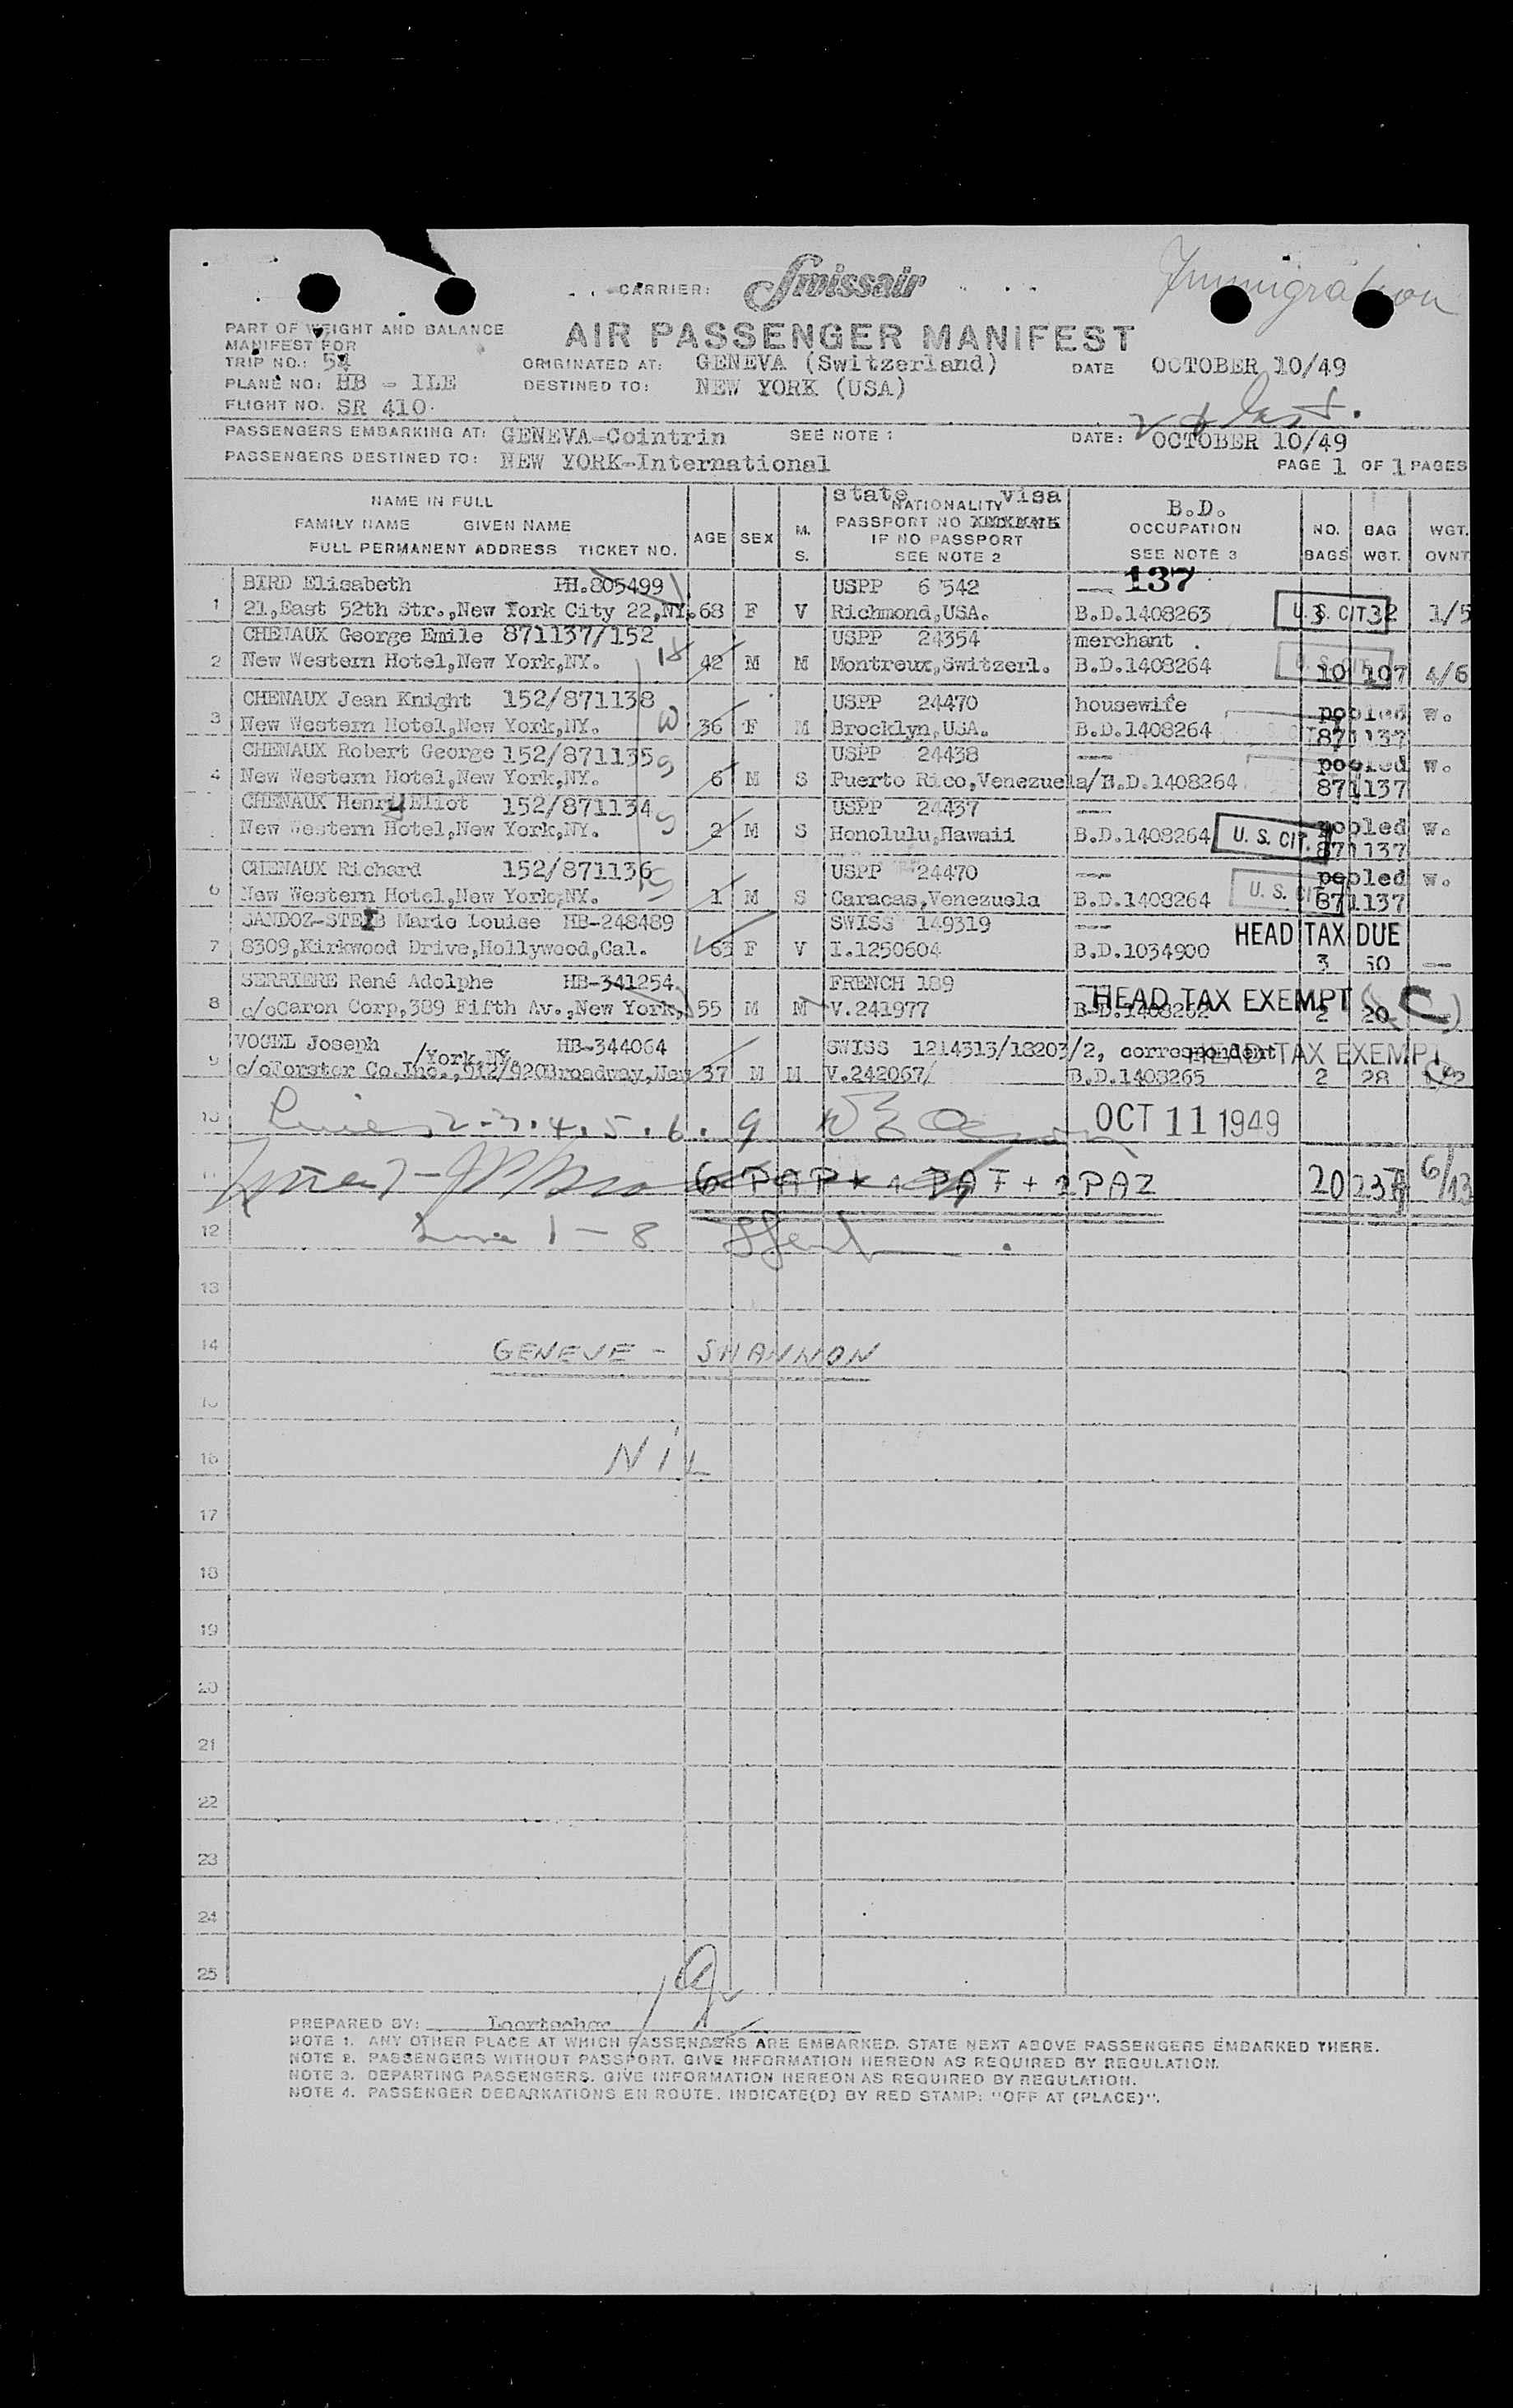 Immigration
CARRIER: Swissair
PART OF WEIGHT AND BALANCE
MANIFEST FOR
AIR PASSENGER MANIFEST
TRIP NO.: 54
ORIGINATED AT: GENEVA (Switzerland) DATE OCTOBER 10/49
PLANE NO: HB - ILE
DESTINED TO: NEW YORK (USA)
FLIGHT NO. SR 410.
PASSENGERS EMBARKING AT: GENEVA-Cointrin SEE NOTE 1 DATE: OCTOBER 10/49
PASSENGERS DESTINED TO: NEW YORK-International PAGE 1 OF 1 PAGES
NAME IN FULL
FAMILY NAME GIVEN NAME
FULL PERMANENT ADDRESS TICKET NO.
AGE SEX M. S.
state visa
NATIONALITY
PASSPORT NO
IF NO PASSPORT
SEE NOTE 2
B.D.
OCCUPATION
SEE NOTE 3
NO. BAGS
BAG WGT.
WGT. OVNT
137
BIRD Elisabeth HH.805499 USPP 6 542 ---
1 21,East 52th Str.,New York City 22,NY. 68 F V Richmond,USA. B.D.1408263 U.S. CIT. 3 32 1/5
CHENAUX George Emile 871137/152 USPP 24354 merchant
2 New Western Hotel,New York,NY. 42 M M Montreux,Switzerl. B.D.1408264 10 107 4/6
CHENAUX Jean Knight 152/871138 USPP 24470 housewife pooled w.
3 New Western Hotel,New York,NY. 36 F M Brocklyn,USA. B.D.1408264 871137
CHENAUX Robert George 152/871135 USPP 24438 --- pooled w.
4 New Western Hotel,New York,NY. 6 M S Puerto Rico,Venezuela/B.D.1408264 871137
CHENAUX Henry Eliot 152/871134 USPP 24437 --- pooled w.
New Western Hotel,New York,NY. 2 M S Honolulu,Hawaii B.D.1408264 U. S. CIT. 871137
CHENAUX Richard 152/871136 USPP 24470 --- pooled w.
6 New Western Hotel,New York,NY. 1 M S Caracas,Venezuela B.D.1408264 U. S. CIT. 871137
SANDOZ-STEIB Marie Louise HB-248489 SWISS 149319 --- HEAD TAX DUE
7 8309,Kirkwood Drive,Hollywood,Cal. 63 F V I.1250604 B.D.1034900 3 50 --
SERRIERE René Adolphe HB-341254 FRENCH 189 HEAD TAX EXEMPT
8 c/oCaron Corp,389 Fifth Av.,New York, 55 M M V.241977 B.D.1408262 2 20
VOGEL Joseph /York,NY. HB-344064 SWISS 1214313/18203/2, correspondent HEAD TAX EXEMPT
9 c/oForster Co.Inc.,912/920Broadway,New 37 M M V.242067/ B.D.1408265 2 28
10 Lines 2.3.4.5.6.9 OCT 11 1949
6 PAP + 1 PAF + 2 PAZ 20 237 6/13
12 Line 1 - 8
13
14 GENEVE - SHANNON
15
16 NIL
17
18
19
20
21
22
23
24
25
PREPARED BY:
NOTE 1. ANY OTHER PLACE AT WHICH PASSENGERS ARE EMBARKED. STATE NEXT ABOVE PASSENGERS EMBARKED THERE.
NOTE 2. PASSENGERS WITHOUT PASSPORT. GIVE INFORMATION HEREON AS REQUIRED BY REGULATION.
NOTE 3. DEPARTING PASSENGERS. GIVE INFORMATION HEREON AS REQUIRED BY REGULATION.
NOTE 4. PASSENGER DEBARKATIONS EN ROUTE. INDICATE(D) BY RED STAMP: "OFF AT (PLACE)".